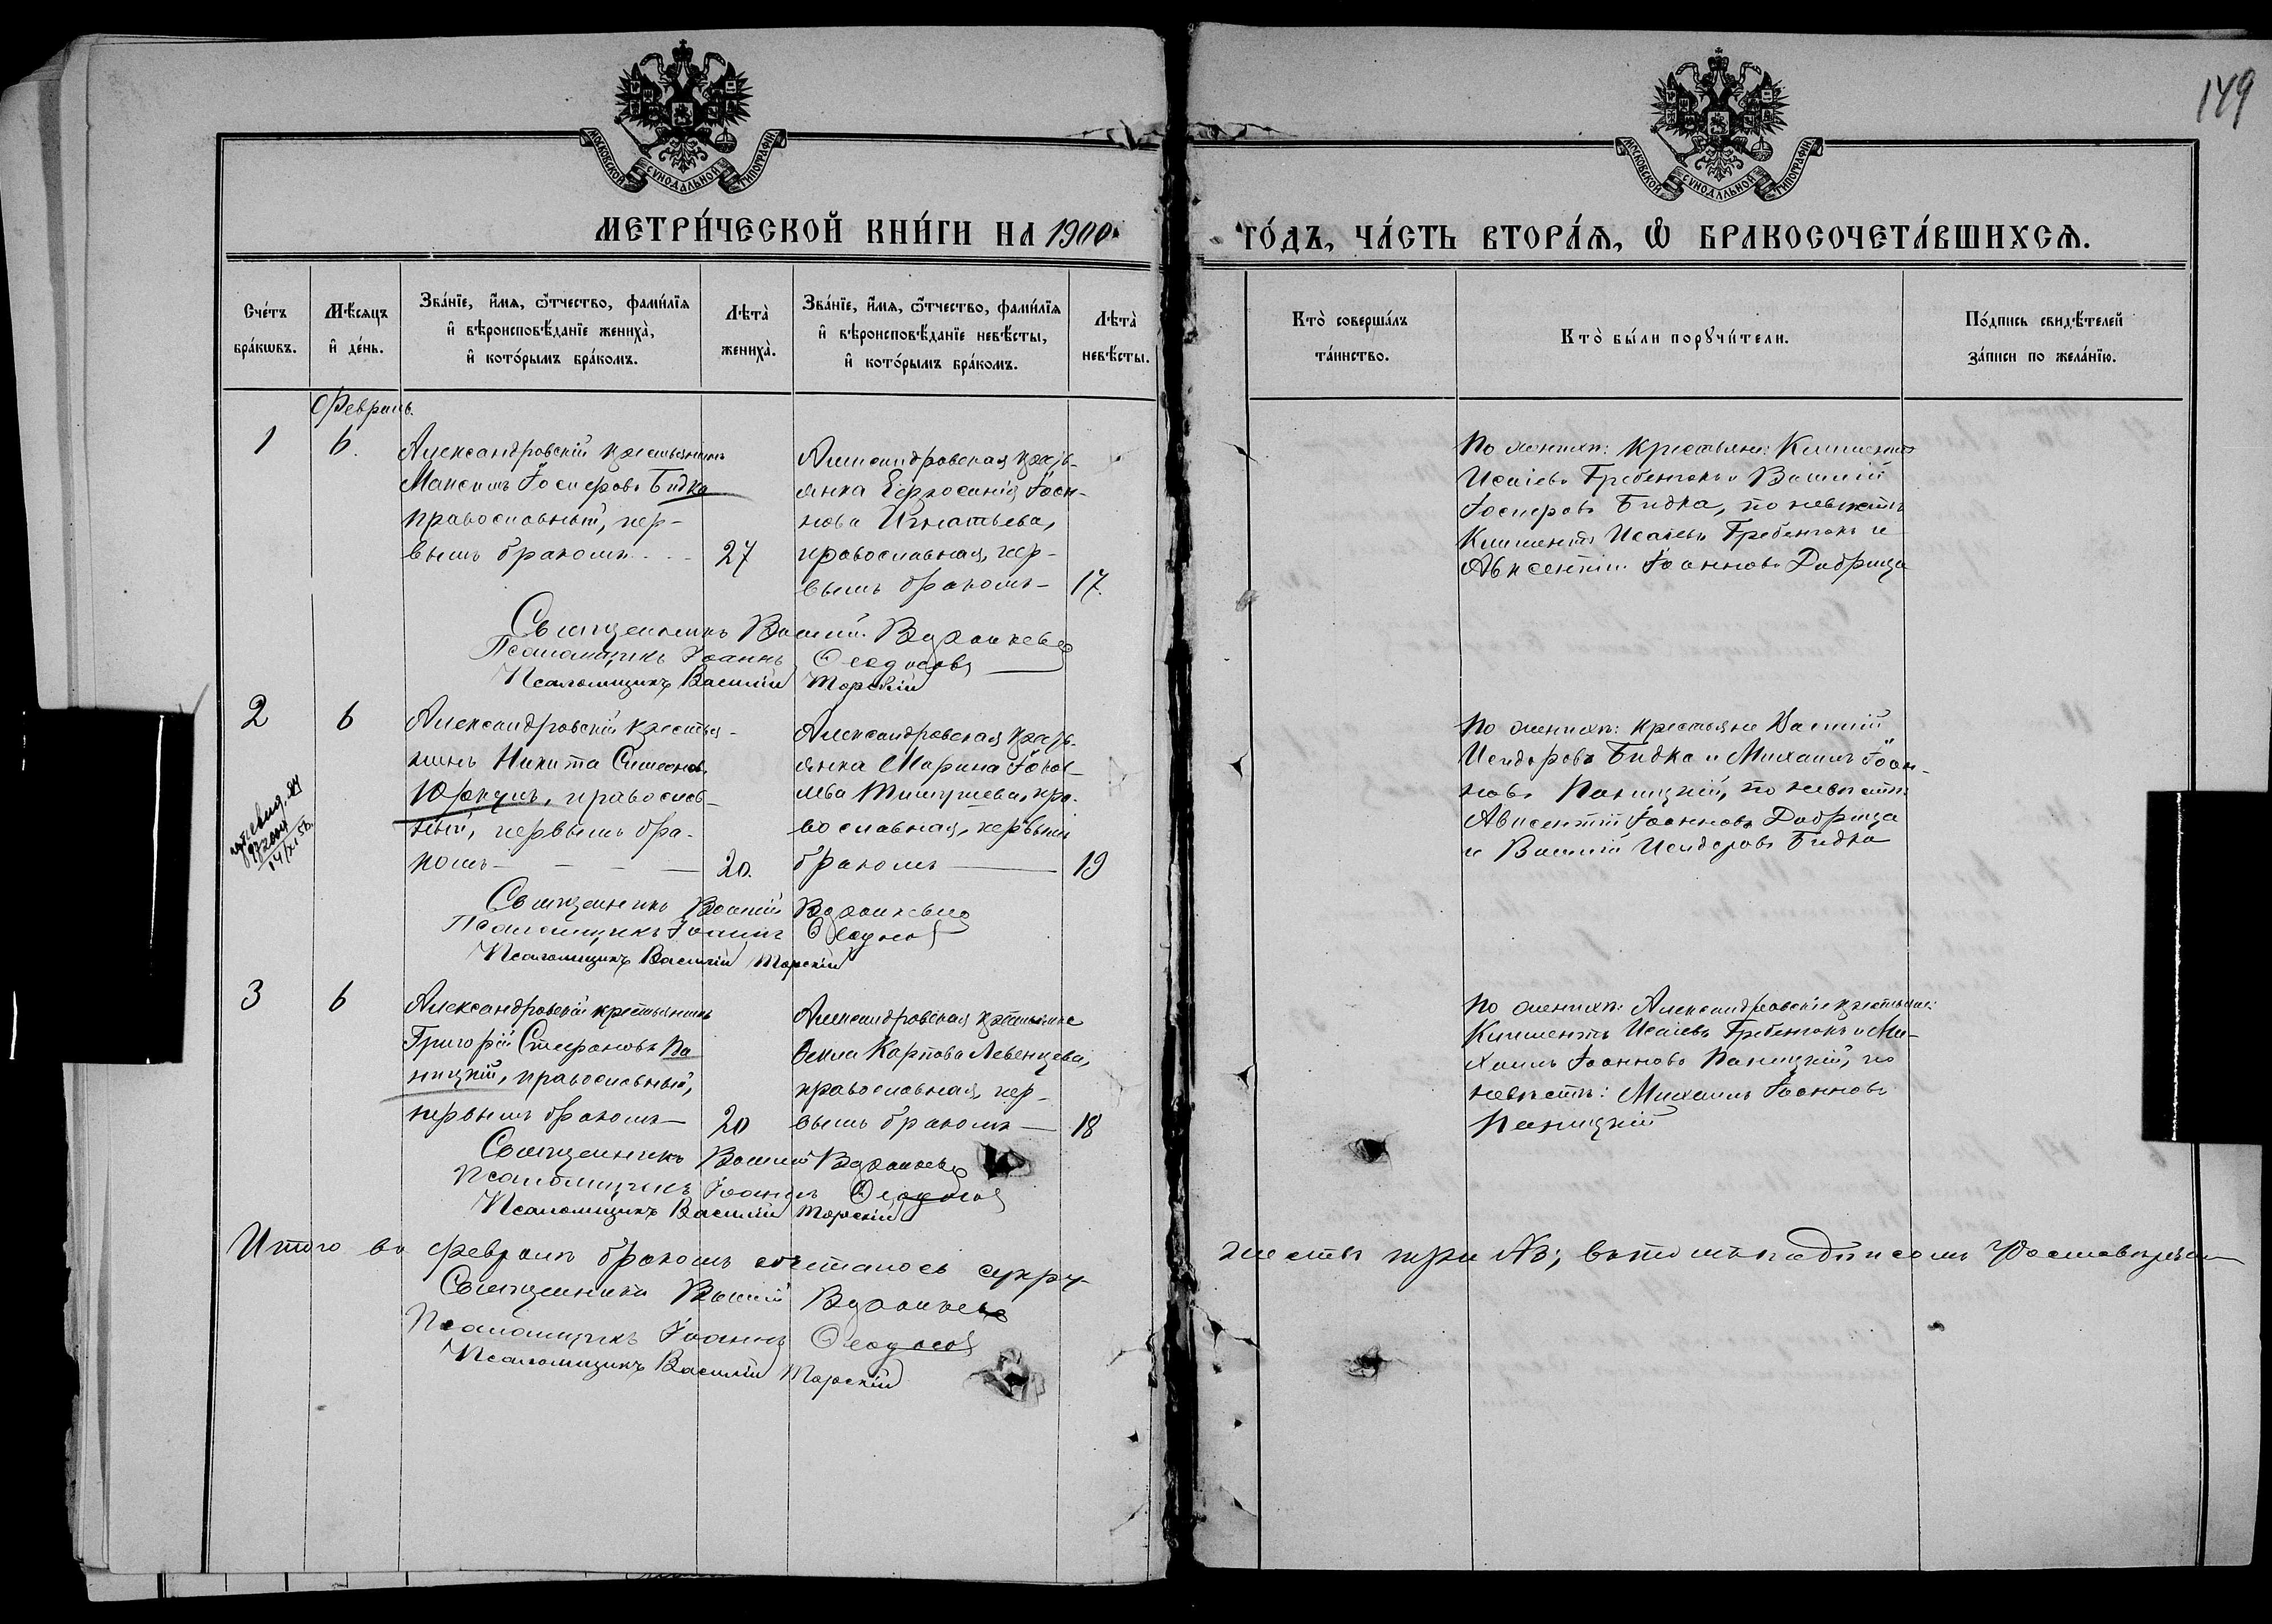 149
МОСКОВСКОЙ СѴНОДАЛЬНОЙ ТИПОГРАФІИ
МОСКОВСКОЙ СѴНОДАЛЬНОЙ ТИПОГРАФІИ
МЕТРИ́ЧЕСКОЙ КНИ́ГИ НА 1900
ГО́ДЪ, ЧА́СТЬ ВТОРА́Ѧ, Ѡ БРАКОСОЧЕТА́ВШИХСѦ.
Сче́тъ бра́кѡвъ.
Мѣ́сяцъ и҆ де́нь.
Зва́нїе, и҆́мя, ѻ҆́тчество, фами́лїя
и҆ вѣроисповѣ́данїе жениха̀,
и҆ кото́рымъ бра́комъ.
Лѣта̀ жениха̀.
Зва́нїе, и҆́мя, ѻ҆́тчество, фами́лїя
и҆ вѣроисповѣ́данїе невѣ́сты,
и҆ кото́рымъ бра́комъ.
Лѣта̀ невѣ́сты.
Кто̀ соверша́лъ та́инство.
Кто̀ бы́ли порꙋчи́тели.
По́дпись свидѣ́телей за́писи по жела́нїю.
Февраль.
1
6.
Александровскій крестьянинъ
Максимъ Іосифовъ Бидка
православный, пер-
вымъ бракомъ - -
27
Александровская кресть-
янка Евфросинія Іоан-
нова Игнатьева,
православная, пер-
вымъ бракомъ -
17.
По женихѣ: крестьяне: Климентъ
Исаіевъ Гребенюкъ и Василій
Іосифовъ Бидка, по невѣстѣ
Климентъ Исаіевъ Гребенюкъ и
Авксентій Іоанновъ Добрица
Священникъ Василій
Псаломщикъ Іоаннъ Ѳеодосовъ
Псаломщикъ Василій Торскій
2
6
Александровскій крестья-
нинъ Никита Симеоновъ
православ-
ный, первымъ бра-
комъ - - -
20.
Александровская кресть-
янка Марина
пра-
вославная, первымъ
бракомъ -
19
По женихѣ: крестьяне Василій
Исидоровъ Бидка и Михаилъ Іоан-
новъ Паницкій, по невѣстѣ:
Авксентій Іоанновъ Добрица
и Василій Исидоровъ Бидка
14/XI 56.
Священникъ Василій
Псаломщикъ Іоаннъ Ѳеодосовъ
Псаломщикъ Василій Торскій
3
6
Александровскій крестьянинъ
Григорій Стефановъ Па
ницкій, православный,
первымъ бракомъ -
20
Александровская крестьянка
Ѳекла Карпова Левенцева,
православная, пер-
вымъ бракомъ -
18
По женихѣ: Александровскіе крестьяне:
Климентъ Исаіевъ Гребенюкъ и Ми-
хаилъ Іоанновъ Паницкій, по
невѣстѣ: Михаилъ Іоанновъ
Паницкій
Священникъ Василій
Псаломщикъ Іоаннъ Ѳеодосовъ
Псаломщикъ Василій Торскій
Итого въ февралѣ бракомъ сочеталось супру-
жествъ три №3; въ томъ подписомъ
Священникъ Василій
Псаломщикъ Іоаннъ Ѳеодосовъ
Псаломщикъ Василій Торскій